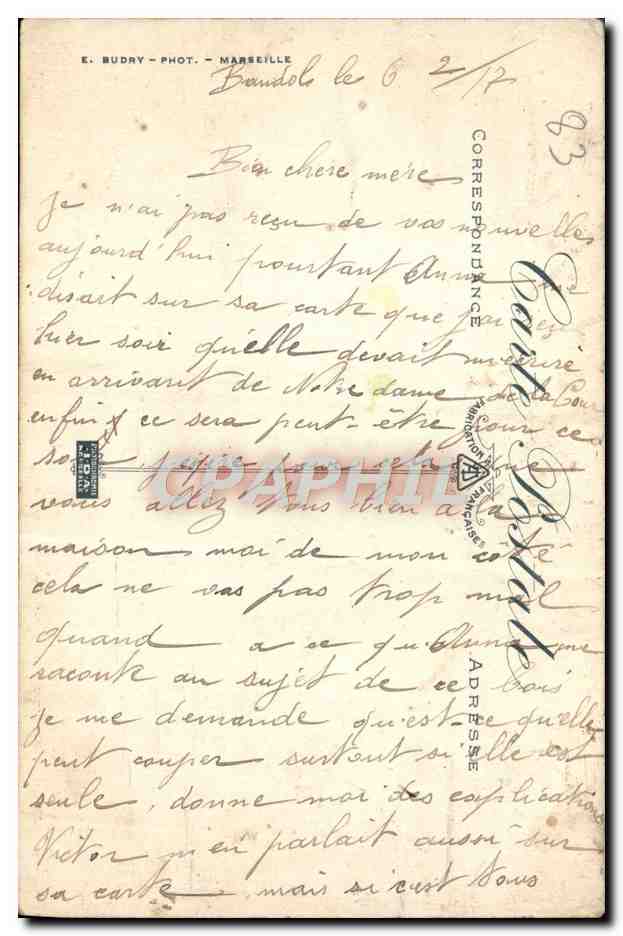 E. BUDRY - PHOT. - MARSEILLE
Bandol le 6 2/17
83
Bien chère mère
Je n'ai pas reçu de vos nouvelles
aujourd'hui pourtant Anna me
disait sur sa carte que
hier soir qu'elle devait m'écrire
en arrivant de Notre dame de la
enfin ce sera peut-être pour ce
soir, j'espère pour cela que
vous allez tous bien a la
maison moi de mon coté
cela ne vas pas trop mal
quand a ce qu'Anna me
raconte au sujet de ce bois
je me demande qu'est-ce qu'elle
peut couper surtout si elle est
seule, donne moi des explications
Victor m'en parlait aussi sur
sa carte, mais si c'est tous
CORRESPONDANCE
Carte Postale
ADRESSE
FABRICATION FRANÇAISE
PHOTOTYPIE
I.D.A.
MARSEILLE
CPAPHIL